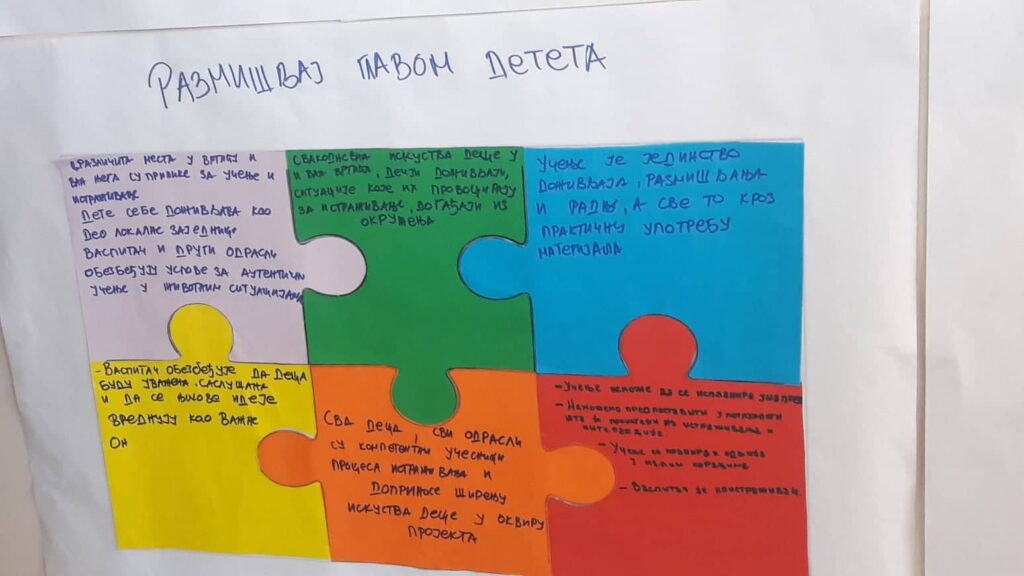 РАЗМИШЉАЈ ГЛАВОМ ДЕТЕТА
РАЗЛИЧИТА МЕСТА У ВРТИЋУ И
ВАН ЊЕГА СУ ПРИЛИКЕ ЗА УЧЕЊЕ И
ИСТРАЖИВАЊЕ
ДЕТЕ СЕБЕ ДОЖИВЉАВА КАО
ДЕО ЛОКАЛНЕ ЗАЈЕДНИЦЕ
ВАСПИТАЧ И ДРУГИ ОДРАСЛИ
ОБЕЗБЕЂУЈУ УСЛОВЕ ЗА АУТЕНТИЧНО
УЧЕЊЕ У ЖИВОТНИМ СИТУАЦИЈАМА
СВАКОДНЕВНА ИСКУСТВА ДЕЦЕ У
И ВАН ВРТИЋА, ДЕЧЈИ ДОЖИВЉАЈИ,
СИТУАЦИЈЕ КОЈЕ ИХ ПРОВОЦИРАЈУ
ЗА ИСТРАЖИВАЊЕ, ДОГАЂАЈИ ИЗ
ОКРУЖЕЊА
УЧЕЊЕ ЈЕ ЈЕДИНСТВО
ДОЖИВЉАЈА, РАЗМИШЉАЊА
И РАДЊИ, А СВЕ ТО КРОЗ
ПРАКТИЧНУ УПОТРЕБУ
МАТЕРИЈАЛА
- ВАСПИТАЧ ОБЕЗБЕЂУЈЕ ДА ДЕЦА
БУДУ УВАЖЕНА, САСЛУШАНА
И ДА СЕ ЊИХОВЕ ИДЕЈЕ
ВРЕДНУЈУ КАО ВАЖНЕ
ОН
СВА ДЕЦА, СВИ ОДРАСЛИ
СУ КОМПЕТЕНТНИ УЧЕСНИЦИ
ПРОЦЕСА ИСТРАЖИВАЊА И
ДОПРИНОСЕ ШИРЕЊУ
ИСКУСТВА ДЕЦЕ У ОКВИРУ
ПРОЈЕКТА
- УЧЕЊЕ НЕ МОЖЕ ДА СЕ ИСПЛАНИРА УНАПРЕД
- НЕМОГУЋЕ ПРЕДПОСТАВИТИ У ПОТПУНОСТИ
ШТА ЋЕ ИЗ ИСТРАЖИВАЊА И
ИНТЕРАКЦИЈЕ
- УЧЕЊЕ СЕ ПЛАНИРА
У МАЛИМ КОРАЦИМА
- ВАСПИТАЧ ЈЕ